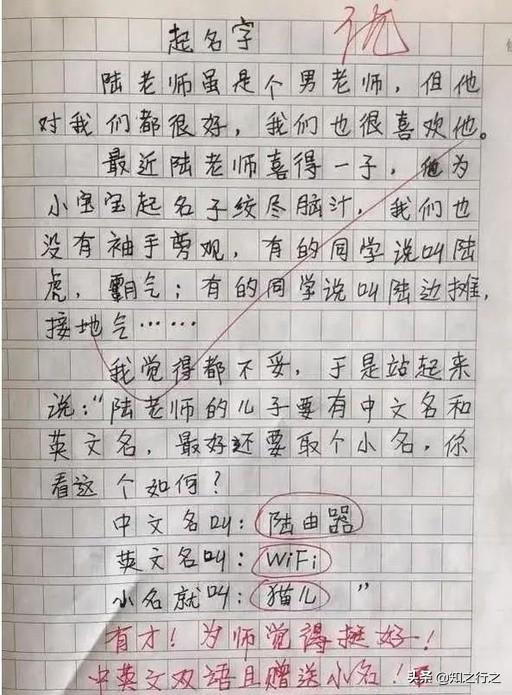 起名字
优
陆老师虽是个男老师，但他
对我们都很好，我们也很喜欢他。
最近陆老师喜得一子，他为
小宝宝起名子绞尽脑汁，我们也
没有袖手剪观，有的同学说叫陆
虎，霸气；有的同学说叫陆边摊，
接地气……
我觉得都不妥，于是站起来
说：“陆老师的儿子要有中文名和
英文名，最好还要取个小名，你
看这个如何？
中文名叫：陆由器
英文名叫：WiFi
小名就叫：猫儿”
有才！为师觉得挺好！
中英文双语且赠送小名！
头条 @知之行之